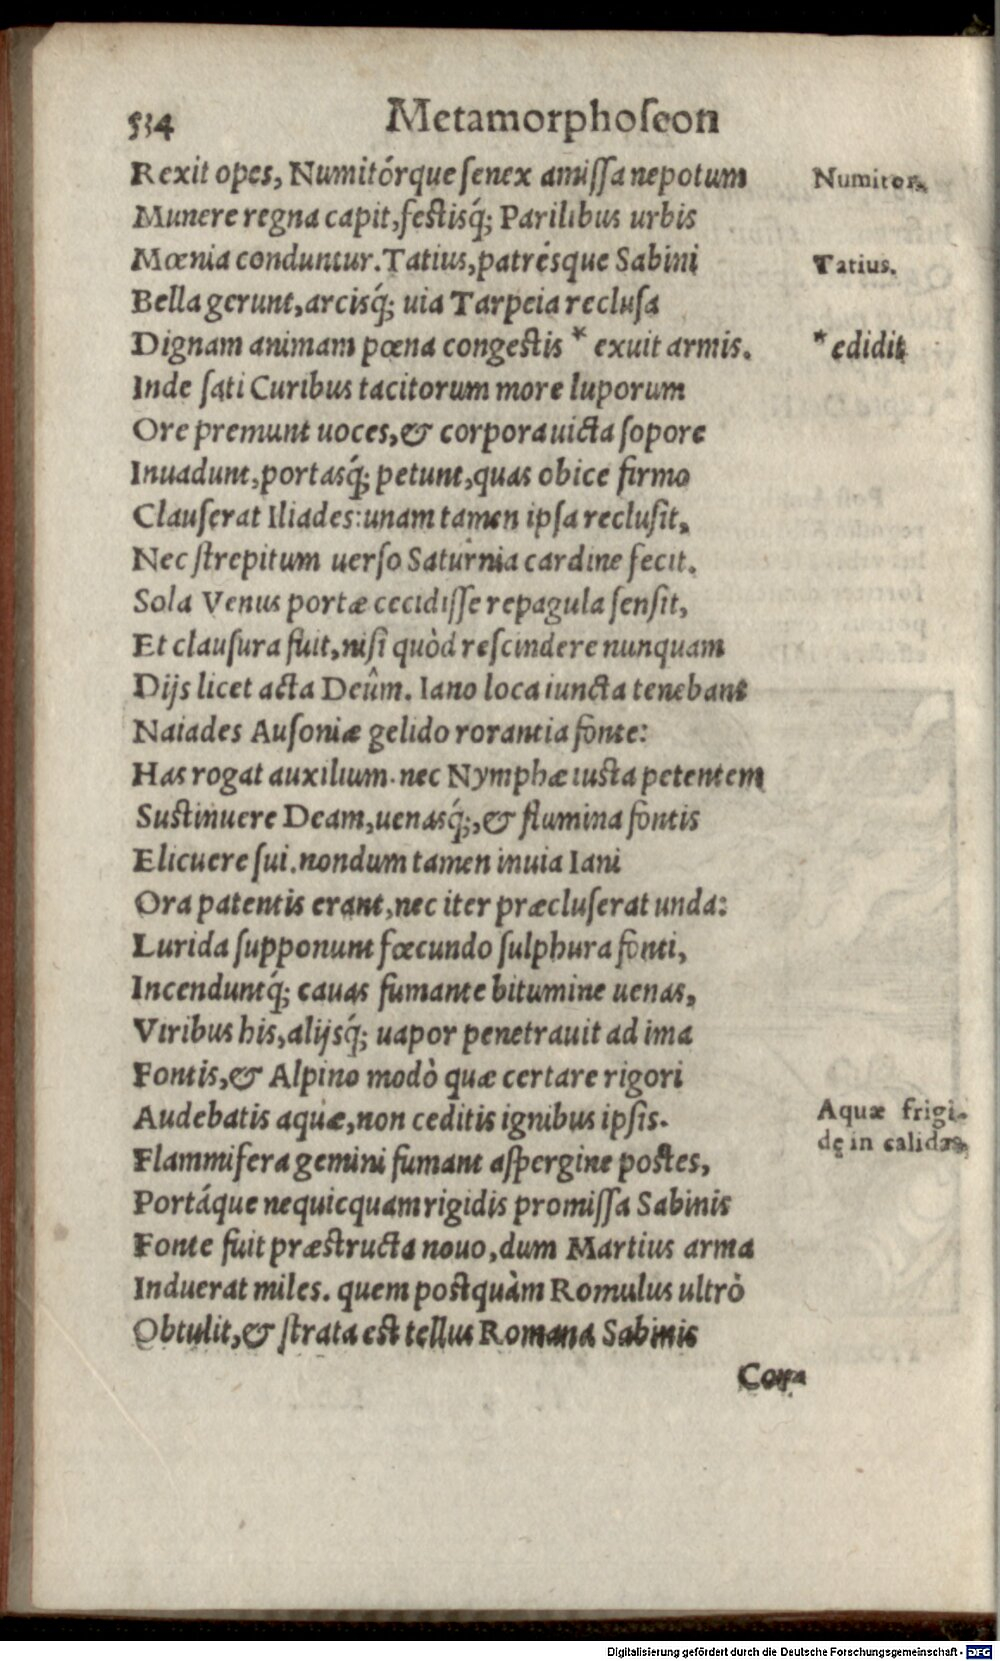 534 Metamorphoſeon
Rexit opes, Numitórque ſenex amiſſa nepotum
Numitor.
Munere regna capit, feſtisq́; Parilibus urbis
Mœnia conduntur. Tatius, patrésque Sabini
Tatius.
Bella gerunt, arcisq́; uia Tarpeia recluſa
Dignam animam pœna congeſtis * exuit armis.
* edidit
Inde ſati Curibus tacitorum more luporum
Ore premunt uoces, & corpora uicta ſopore
Inuadunt, portasq́; petunt, quas obice firmo
Clauſerat Iliades: unam tamen ipſa recluſit,
Nec ſtrepitum uerſo Saturnia cardine fecit.
Sola Venus portæ cecidiſſe repagula ſenſit,
Et clauſura fuit, niſi quòd reſcindere nunquam
Dijs licet acta Deûm. Iano loca iuncta tenebant
Naiades Auſoniæ gelido rorantia fonte:
Has rogat auxilium. nec Nymphæ iuſta petentem
Suſtinuere Deam, uenasq́;, & flumina fontis
Elicuere ſui. nondum tamen inuia Iani
Ora patentis erant, nec iter præcluſerat unda:
Lurida ſupponunt fœcundo ſulphura fonti,
Incenduntq́; cauas fumante bitumine uenas,
Viribus his, alijsq́; uapor penetrauit ad ima
Fontis, & Alpino modò quæ certare rigori
Audebatis aquæ, non ceditis ignibus ipſis.
Aquæ frigi-
dę in calidas,
Flammifera gemini fumant aſpergine poſtes,
Portáque nequicquam rigidis promiſſa Sabinis
Fonte fuit præſtructa nouo, dum Martius arma
Induerat miles. quem poſtquàm Romulus ultrò
Obtulit, & ſtrata eſt tellus Romana Sabinis
Cor-
Digitalisierung gefördert durch die Deutsche Forschungsgemeinschaft - DFG